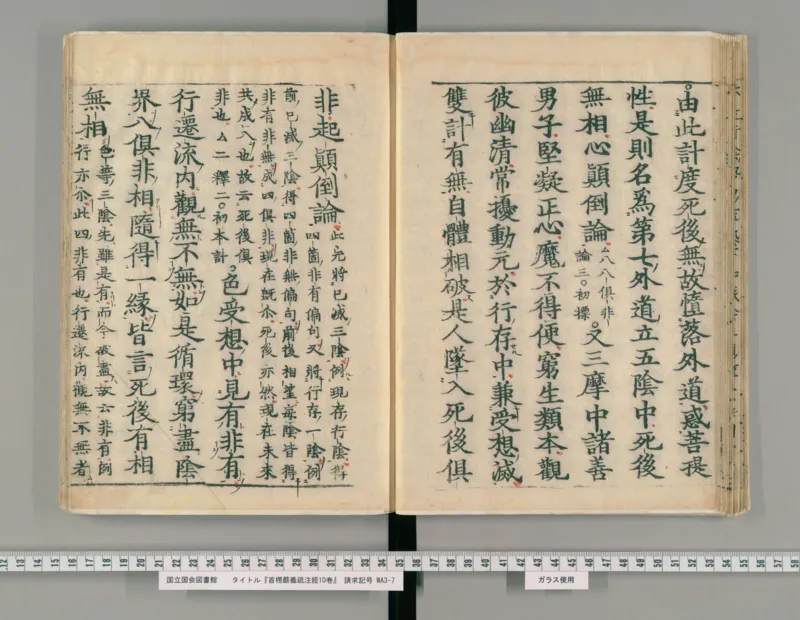 由此計度死後無故墮落外道惑菩提
性是則名爲第七外道立五陰中死後
無相心顛倒論
厶八八俱非
論三〇初標
〇又三摩中諸善
男子堅凝正心魔不得便窮生類本觀
彼幽清常擾動元於行存中兼受想滅
雙計有無自體相破是人墜入死後俱
非起顛倒論
此先將已滅三陰例現存行陰得
四箇非有偏句又將行存一陰例
前已滅三陰得四箇非無偏句前後相望每陰皆得
非有非無成四俱非現在既尒死後亦然現在未來
共成八也故云死後俱
非也厶二釋二〇初本計
〇色受想中見有非有
行遷流内觀無不無如是循環窮盡陰
界八俱非相隨得一緣皆言死後有相
無相
色等三陰先雖是有而今破盡故云非有例
行亦尒此四非有也行遷流内觀無不無者
12 13 14 15 16 17 18 19 20 21 22 23 24 25 26 27 28 29 30 31 32 33 34 35 36 37 38 39 40 41 42 43 44 45 46 47 48 49 50 51 52 53 54 55 56 57 58
国立国会図書館 タイトル『首楞嚴義疏注經10巻』 請求記号 WA3-7
ガラス使用